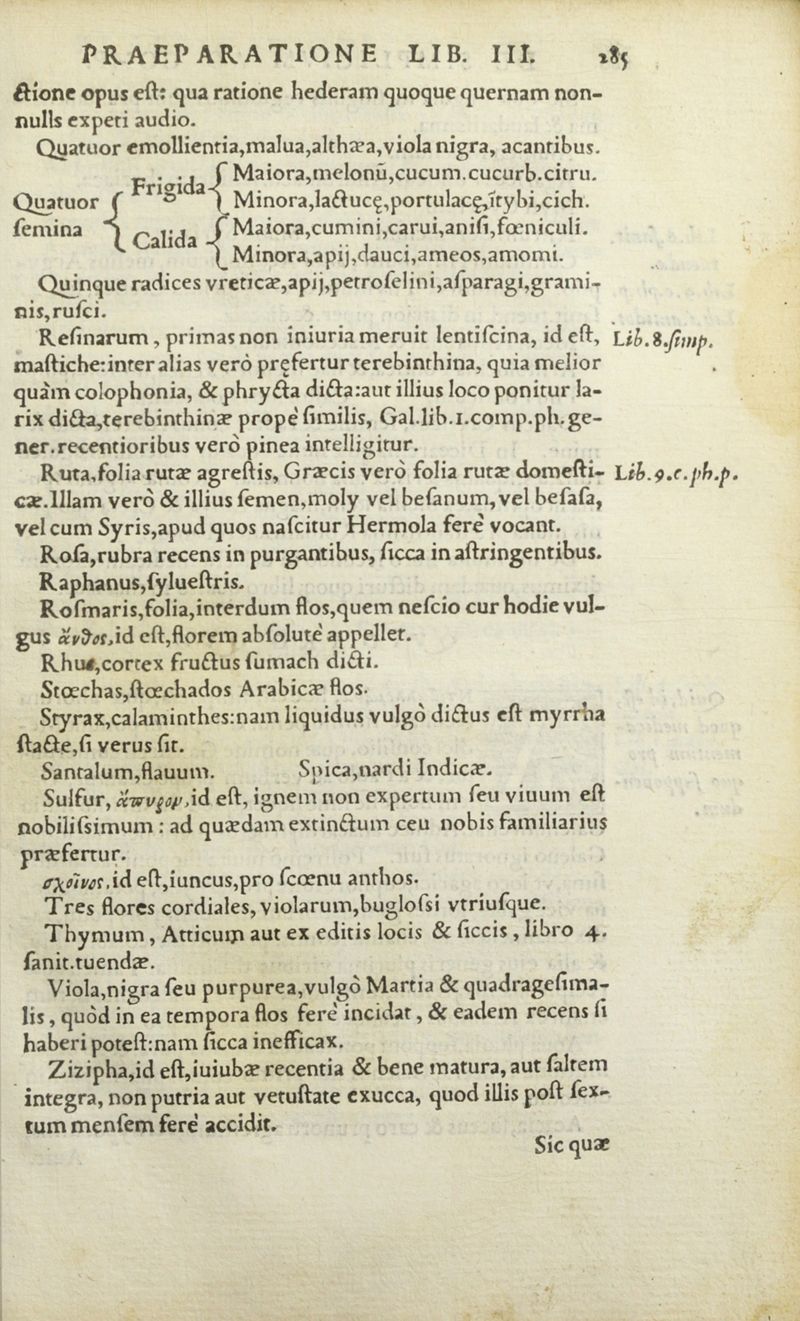 PRAEPARATIONE LIB. III. 285
ctione opus eſt: qua ratione hederam quoque quernam non-
nulls expeti audio.
Quatuor emollientia,malua,althæa,viola nigra, acantibus.
Quatuor ſemina { Frigida { Maiora,melonū,cucum.cucurb.citru.
Minora,lactucę,portulacę,ītybi,cich.
Calida { Maiora,cumini,carui,aniſi,fœniculi.
Minora,apij,dauci,ameos,amomi.
Quinque radices vreticæ,apij,petroſelini,aſparagi,grami-
nis,ruſci.
Reſinarum, primas non iniuria meruit lentiſcina, id eſt, Lib.8.ſimp.
maſtiche:inter alias verò pręfertur terebinthina, quia melior
quàm colophonia, & phrycta dicta:aut illius loco ponitur la-
rix dicta,terebinthinæ propè ſimilis, Gal.lib.1.comp.ph.ge-
ner.recentioribus verò pinea intelligitur.
Ruta,folia rutæ agreſtis, Græcis verò folia rutæ domeſti- Lib.9.c.ph.p.
cæ.Illam verò & illius ſemen,moly vel beſanum,vel beſaſa,
vel cum Syris,apud quos naſcitur Hermola ferè vocant.
Roſa,rubra recens in purgantibus, ſicca in aſtringentibus.
Raphanus,ſylueſtris.
Roſmaris,folia,interdum flos,quem neſcio cur hodie vul-
gus ἄνθος,id eſt,florem abſolutè appellet.
Rhus,cortex fructus ſumach dicti.
Stœchas,ſtœchados Arabicæ flos.
Styrax,calaminthes:nam liquidus vulgò dictus eſt myrrha
ſtacte,ſi verus ſit.
Santalum,flauum. Spica,nardi Indicæ.
Sulfur, ἄπυρον,id eſt, ignem non expertum ſeu viuum eſt
nobiliſsimum : ad quædam extinctum ceu nobis familiarius
præfertur.
σχοῖνος,id eſt,iuncus,pro ſcœnu anthos.
Tres flores cordiales, violarum,bugloſsi vtriuſque.
Thymum, Atticum aut ex editis locis & ſiccis, libro 4.
ſanit.tuendæ.
Viola,nigra ſeu purpurea,vulgò Martia & quadrageſima-
lis, quòd in ea tempora flos ferè incidat, & eadem recens ſi
haberi poteſt:nam ſicca inefficax.
Zizipha,id eſt,iuiubæ recentia & bene matura, aut ſaltem
integra, non putria aut vetuſtate exucca, quod illis poſt ſex-
tum menſem ferè accidit.
Sic quæ